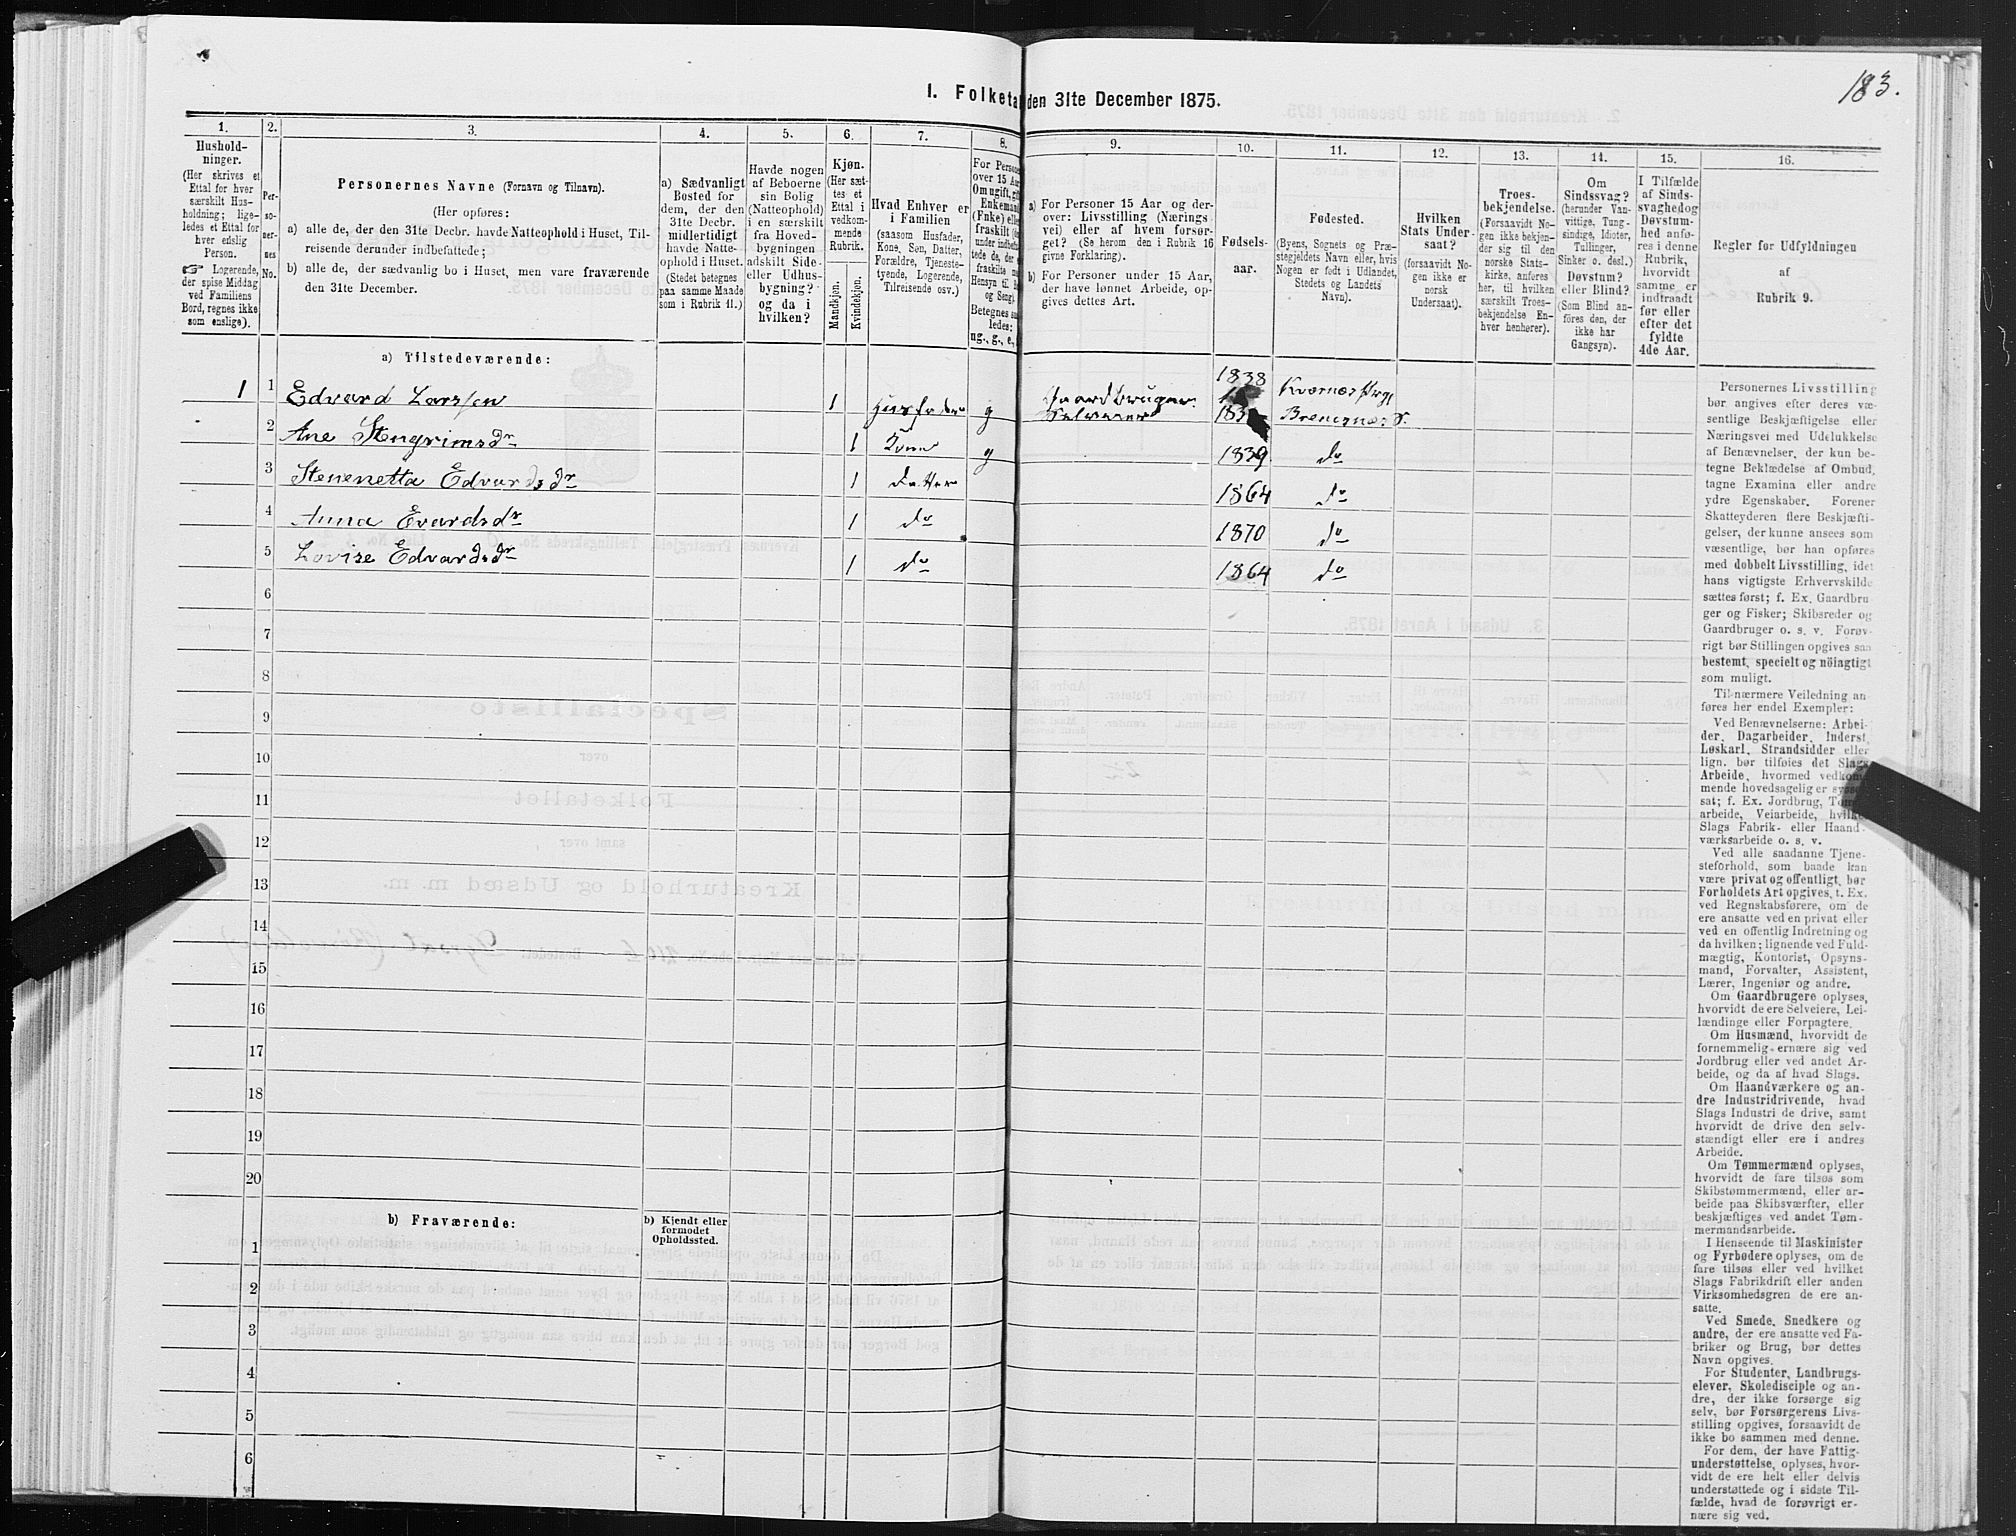 183.
I. Folketa den 31te December 1875.
1. 2. 3. 4. 5. 6. 7. 8. 9. 10. 11. 12. 13. 14. 15. 16.
Hushold-
ninger.
(Her skrives et
Ettal for hver
særskilt Hus-
holdning; lige-
ledes et Ettal for
hver enslig
Person.
☞ Logerende,
der spise Middag
ved Familiens
Bord, regnes ikke
som enslige).
Per-
so-
ner-
nes
No.
Personernes Navne (Fornavn og Tilnavn).
(Her opføres:
a) alle de, der den 31te Decbr. havde Natteophold i Huset, Til-
reisende derunder indbefattede;
b) alle de, der sædvanlig bo i Huset, men vare fraværende
den 31te December.
a) Sædvanligt
Bosted for
dem, der den
31te Decbr.
midlertidigt
havde Natte-
ophold i Huset.
(Stedet betegnes
paa samme Maade
som i Rubrik 11.)
Havde nogen
af Beboerne
sin Bolig
(Natteophold)
i en særskilt
fra Hoved-
bygningen
adskilt Side-
eller Udhus-
bygning?
og da i
hvilken?
Kjøn.
(Her sæt-
tes et
Ettal i
vedkom-
mende
Rubrik.
Mandkjøn.
Kvindekjøn.
Hvad Enhver er
i Familien
(saasom Husfader,
Kone, Søn, Datter,
Forældre, Tjeneste-
tyende, Logerende,
Tilreisende osv.)
For Persone
over 15 Aa
Om ugift, gift
Enkemand
(Fnke) elle
fraskilt (
under indbef
tede de, der e
fraskilte
Hensyn til
og Seng).
Betegnes
ledes:
ug., g., e.,
a) For Personer 15 Aar og der-
over: Livsstilling (Nærings-
vei) eller af hvem forsør-
get? (Se herom den i Rubrik 16
givne Forklaring).
b) For Personer under 15 Aar,
der have lønnet Arbeide, op-
gives dettes Art.
Fødsels-
aar.
Fødested.
(Byens, Sognets og Præ-
stegjeldets Navn eller, hvis
Nogen er født i Udlandet,
Stedets og Landets
Navn).
Hvilken
Stats Under-
saat?
(forsaavidt No-
gen ikke er
norsk
Undersaat).
Troes-
bekjendelse.
(Forsaavidt No-
gen ikke bekjen-
der sig til den
norske Stats-
kirke, anføres
her, til hvilken
særskilt Troes-
bekjendelse En-
hver henhører).
Om
Sindssvag?
(herunder Van-
vittige, Tung-
sindige, Idioter,
Tullinger,
Sinker o. desl.)
Døvstum?
eller Blind?
(Som Blind an-
føres den, der
ikke har
Gangsyn).
I Tilfælde
af Sinds-
svaghed og
Døvstum-
hed anfø-
res i denne
Rubrik,
hvorvidt
samme er
indtraadt
før eller
efter det
fyldte
4de Aar.
Regler for Udfyldningen
af
Rubrik 9.
a) Tilstedeværende:
1 1 Edvard Larssen 1 Husfader g Gaardbruger. Selveier 1838 Kvernes Prg,
183 Bremsnes S.
2 Ane Stengrimsdr 1 Kone g 1839 do
3 Stenenetta Edvardsdr 1 datter 1864 do
4 Anna Evardsdr 1 do 1870 do
5 Lovise Edvardsdr 1 do 1864 do
6
7
8
9
10
11
12
13
14
15
16
17
18
19
20
b) Fraværende:
b) Kjendt eller
formodet
Opholdssted.
1
2
3
4
5
6
Personernes Livsstilling
bør angives efter deres væ-
sentlige Beskjæftigelse eller
Næringsvei med Udelukkelse
af Benævnelser, der kun be-
tegne Beklædelse af Ombud,
tagne Examina eller andre
ydre Egenskaber. Forener
Skatteyderen flere Beskjæfti-
gelser, der kunne ansees som
væsentlige, bør han opføres
med dobbelt Livsstilling, idet
hans vigtigste Erhvervskilde
sættes først; f. Ex. Gaardbru-
ger og Fisker; Skibsreder og
Gaardbruger o. s. v. Forøv-
rigt bør Stillingen opgives saa
bestemt, specielt og nöiagtigt
som muligt.
Til nærmere Veiledning an
føres her endel Exempler:
Ved Benævnelserne: Arbei-
der, Dagarbeider, Inderst,
Løskarl, Strandsidder eller
lign. bør tilføies det Slags
Arbeide, hvormed vedkom-
mende hovedsagelig er syssel-
sat; f. Ex. Jordbrug, Tøm-
arbeide, Veiarbeide, hvilket
Slags Fabrik- eller Haand-
værksarbeide o. s. v.
Ved alle saadanne Tjene-
steforhold, som baade kan
være privat og offentligt, bør
Forholdets Art opgives, t. Ex.
ved Regnskabsførere, om de
ere ansatte ved en privat eller
ved en offentlig Indretning og
da hvilken; lignende ved Fuld-
mægtig, Kontorist, Opsyns-
mand, Forvalter, Assistent,
Lærer, Ingeniør og andre.
Om Gaardbrugere oplyses,
hvorvidt de ere Selveiere, Lei-
lændinge eller Forpagtere.
Om Husmænd, hvorvidt de
fornemmelig ernære sig ved
Jordbrug eller ved andet Ar-
beide, og da af hvad Slags.
Om Haandværkere og an-
dre Industridrivende, hvad
Slags Industri de drive, samt
hvorvidt de drive den selv-
stændigt eller ere i andres
Arbeide.
Om Tømmermænd oplyses,
hvorvidt de fare tilsøs som
Skibstømmermænd, eller ar-
beide paa Skibsværfter, eller
beskjæftiges ved andet Tøm-
mermandsarbeide.
I Henseende til Maskinister
og Fyrbødere oplyses, om de
fare tilsøs eller ved hvilket
Slags Fabrikdrift eller anden
Virksomhedsgren de ere an-
satte.
Ved Smede, Snedkere og
andre, der ere ansatte ved Fa-
briker og Brug, bør dettes
Navn opgives.
For Studenter, Landbrugs-
elever, Skoledisciple og an-
dre, der ikke forsørge sig
selv, bør Forsørgerens Livs-
stilling opgives, forsaavidt de
ikke bo sammen med denne.
For dem, der have Fattig-
understøttelse, oplyses, hvor-
vidt de ere helt eller delvis
understøttede og i sidste Til-
fælde, hvad de forøvrigt er-
nære sig ved.